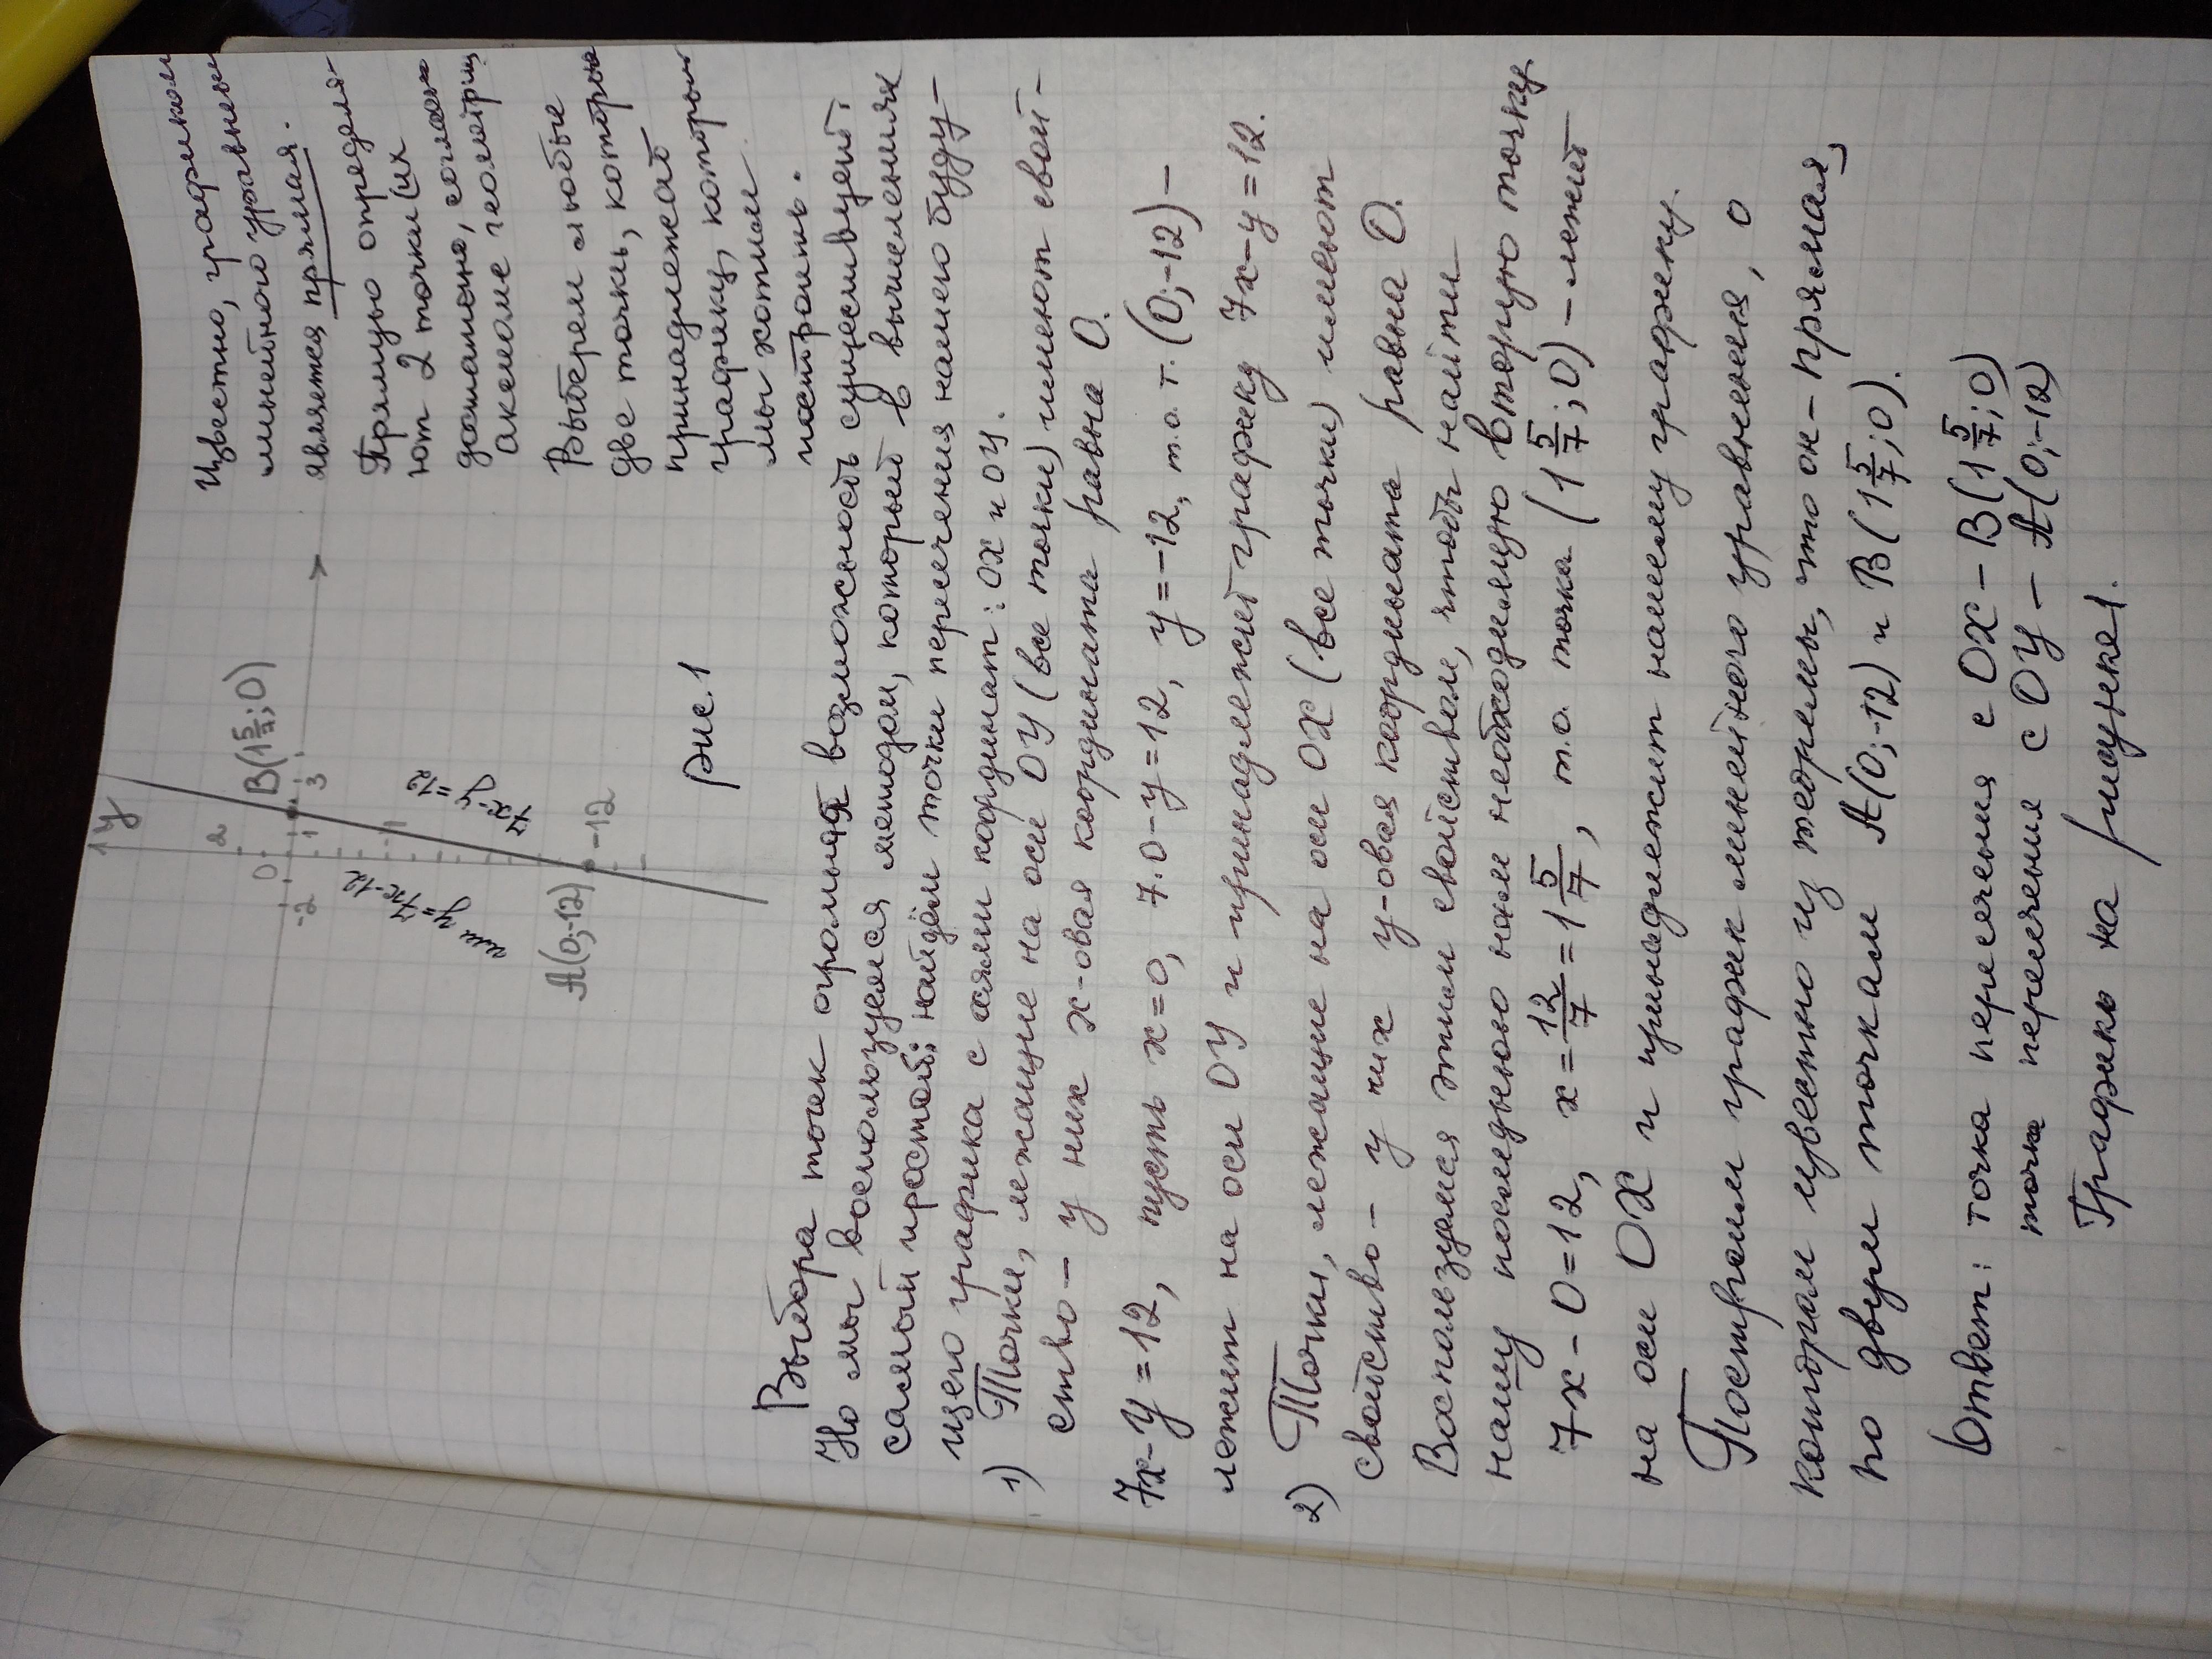 y
2
0
-2
1
3
B(1 5/7; 0)
7x-y
=12
или y=7x-12
A(0;-12)
-12
Рис. 1
Известно, графиком
линейного уравнения
является прямая.
Прямую определя-
ют 2 точки (их
достаточно, согласно
аксиоме геометрии
Выберем любые
две точки, которые
принадлежат
графику, который
мы хотим
построить.
Выбора точек огромная возможность существует.
Но мы воспользуемся методом, который в вычислениях
самый простой: найдём точки пересечения нашего буду-
щего графика с осями координат: OX и OY.
1) Точки, лежащие на оси OY (все точки) имеют свой-
ство - у них x-овая координата равна 0.
7x-y=12, пусть x=0, 7·0-y=12, y=-12, т.о. т. (0;-12) -
лежит на оси OY и принадлежит графику 7x-y=12.
2) Точки, лежащие на оси OX (все точки) имеют
свойство - у них y-овая координата равна 0.
Воспользуемся этим свойством, чтобы найти
нашу последнюю нам необходимую вторую точку
7x-0=12, x=12/7=1 5/7, т.о. точка (1 5/7; 0) - лежит
на оси OX и принадлежит нашему графику.
Построим график линейного уравнения, о
котором известно из теории, что он - прямая,
по двум точкам A(0;-12) и B(1 5/7; 0).
Ответ: точка пересечения с OX - B(1 5/7; 0)
точка пересечения с OY - A(0;-12)
График на рисунке 1.